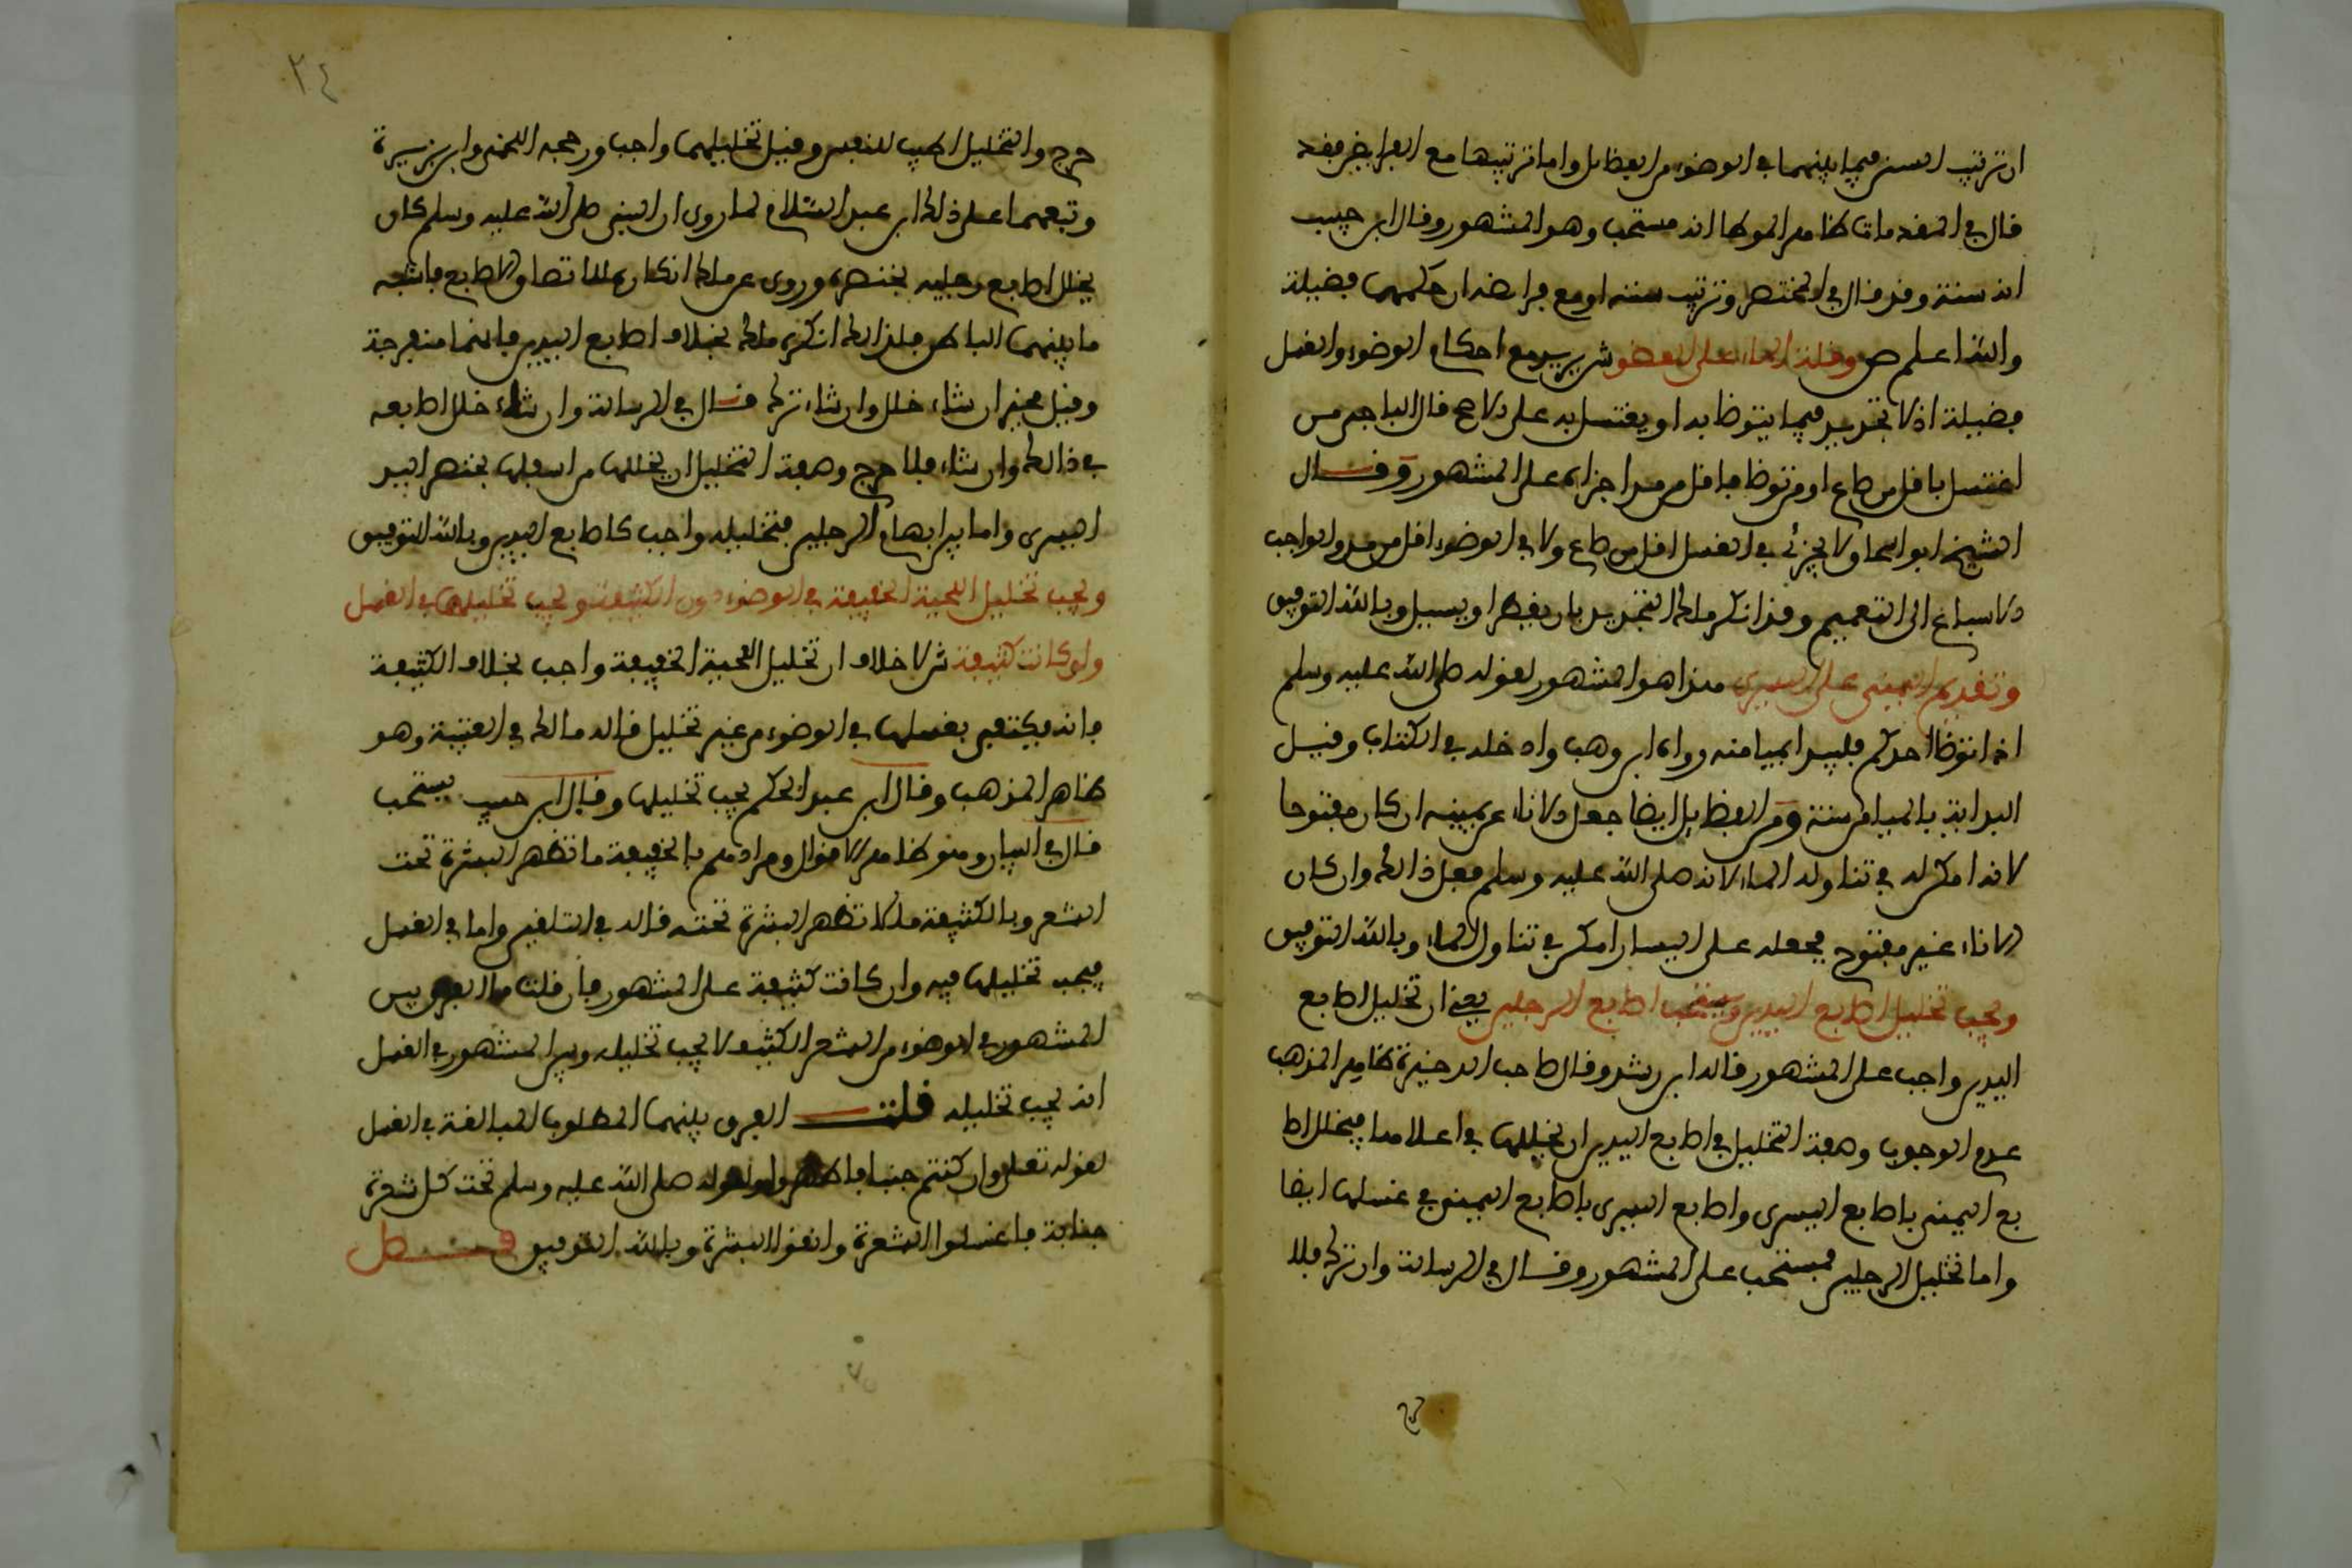 ان ترتيب السنن فيما بينهما في الوضوء من الفظائل واما ترتيبها مع الفرائض فقد
قال في المقدمات ظاهر الموطا انه مستحب وهو المشهور وقال ابن حبيب
انه سنة وقد قال في المختصر وترتيب سننه او مع فرائضه ان حكمهما فضيلة
والله اعلم ص وقلة الماء على العضو ش يريد مع احكام الوضوء والغسل
فضيلة اذ لا تحديد فيما يتوظا به او يغتسل به على الاصح قال الباجي من
اغتسل باقل من صاع او من توظا باقل من مد اجزاه على المشهور وقال
الشيخ ابو اسحاق لا يجزئ في الغسل اقل من صاع ولا في الوضوء اقل من مد والواجب
الاسباغ الى التعميم وقد انكر ملك التحديد بان يقطر او يسيل وبالله التوفيق
وتقديم اليمنى على اليسرى هذا هو المشهور لقوله صلى الله عليه وسلم
اذا توظا احدكم فليبدا بميامنه رواه ابن وهب وادخله في الكتاب وقيل
البداية بالميامن سنة ومن الفظايل ايضا جعل الاناء عن يمينه ان كان مفتوحا
لانه امكن له في تناوله الماء لانه صلى الله عليه وسلم فعل ذالك وان كان
الاناء غير مفتوح فجعله على اليسار امكن في تناول الماء وبالله التوفيق
ويجب تخليل اصابع اليدين ويستحب اصابع الرجلين يعني ان تخليل اصابع
اليدين واجب على المشهور قاله ابن رشد وقال صاحب الذخيرة ظاهر المذهب
عدم الوجوب وصفة التخليل في اصابع اليدين ان يخللها في اعلاها فيخلل اصا
بع اليمنى باصابع اليسرى واصابع اليسرى باصابع اليمنى في غسلها ايضا
واما تخليل الرجلين فمستحب على المشهور وقال في الرسالة وان ترك فلا
حرج
٢٤
حرج والتخليل اطيب للنفس وقيل تخليلهما واجب ورجحه اللخمي وابن بزيزة
وتبعهما على ذلك ابن عبد السلام لما روي ان النبي صلى الله عليه وسلم كان
يخلل اصابع رجليه بخنصره وروي عن ملك انكاره لالتصاق الاصابع فاشبه
ما بينهما الباطن فلذالك انكره ملك بخلاف اصابع اليدين فانها منفرجة
وقيل مخير ان شاء خلل وان شاء ترك قال في الرسالة وان شاء خلل اصابعه
في ذالك وان شاء فلا حرج وصفة التخليل ان يخللها من اسفلها بخنصر اليد
اليسرى واما بين ابهام الرجلين فتخليله واجب كاصابع اليدين وبالله التوفيق
ويجب تخليل اللحية الخفيفة في الوضوء دون الكثيفة ويجب تخليلها في الغسل
ولو كانت كثيفة ش لا خلاف ان تخليل اللحية الخفيفة واجب بخلاف الكثيفة
فانه يكتفى بغسلها في الوضوء من غير تخليل قاله مالك في العتبية وهو
ظاهر المذهب وقال ابن عبد الحكم يجب تخليلها وقال ابن حبيب يستحب
قال في البيان وهو ظاهر الاقوال ومرادهم بالخفيفة ما تظهر البشرة تحت
الشعر وبالكثيفة ما لا تظهر البشرة تحته قاله في التلقين واما في الغسل
فيجب تخليلها فيه وان كانت كثيفة على المشهور فان قلت ما الفرق بين
المشهور في الوضوء من الشعر الكثيف لا يجب تخليله وبين المشهور في الغسل
انه يجب تخليله قلت الفرق بينهما المطلوب المبالغة في الغسل
لقوله تعلى وان كنتم جنبا فاطهروا ولقوله صلى الله عليه وسلم تحت كل شعرة
جنابة فاغسلوا الشعرة وانقوا البشرة وبالله التوفيق فصل